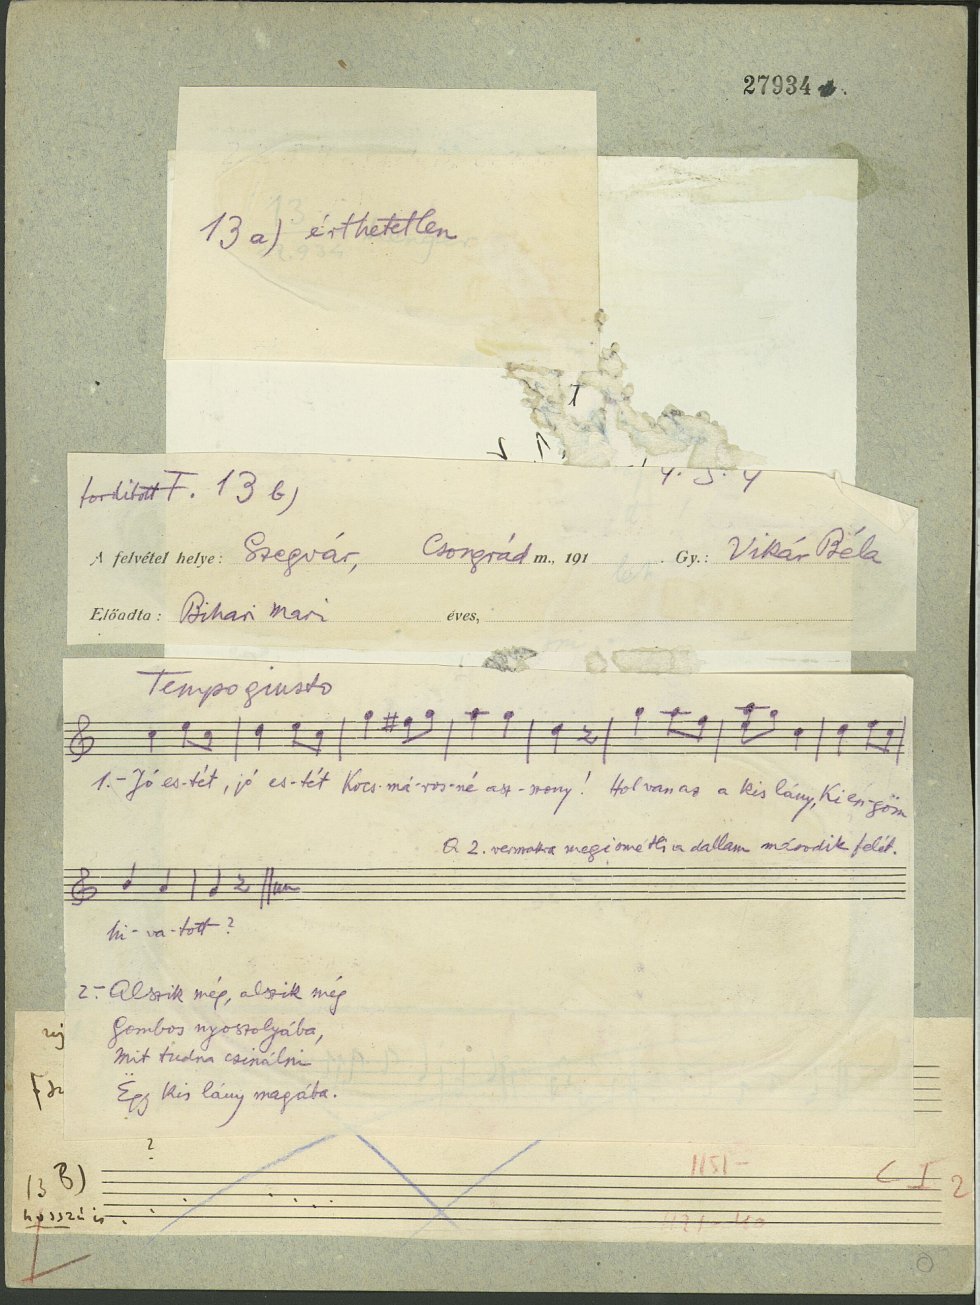 27934
13 a) érthetetlen
fordított F. 13 b)
4. 5. 4
A felvétel helye: Szegvár, Csongrád m., 191 . Gy.: Vikár Béla
Előadta: Bihari Mari éves,
Tempo giusto
1.- Jó es-tét, jó es-tét Kocs-má-ros-né asz-szony! Hol van az a kis lány, Ki én-göm
A 2. versszakra megismétli a dallam második felét.
hi-va-tott?
2.- Alszik még, alszik még
Gombos nyoszolyába,
Mit tudna csinálni
Ëgy kis lány magába.
?
13 B)
1151-
C I 2
hosszú is